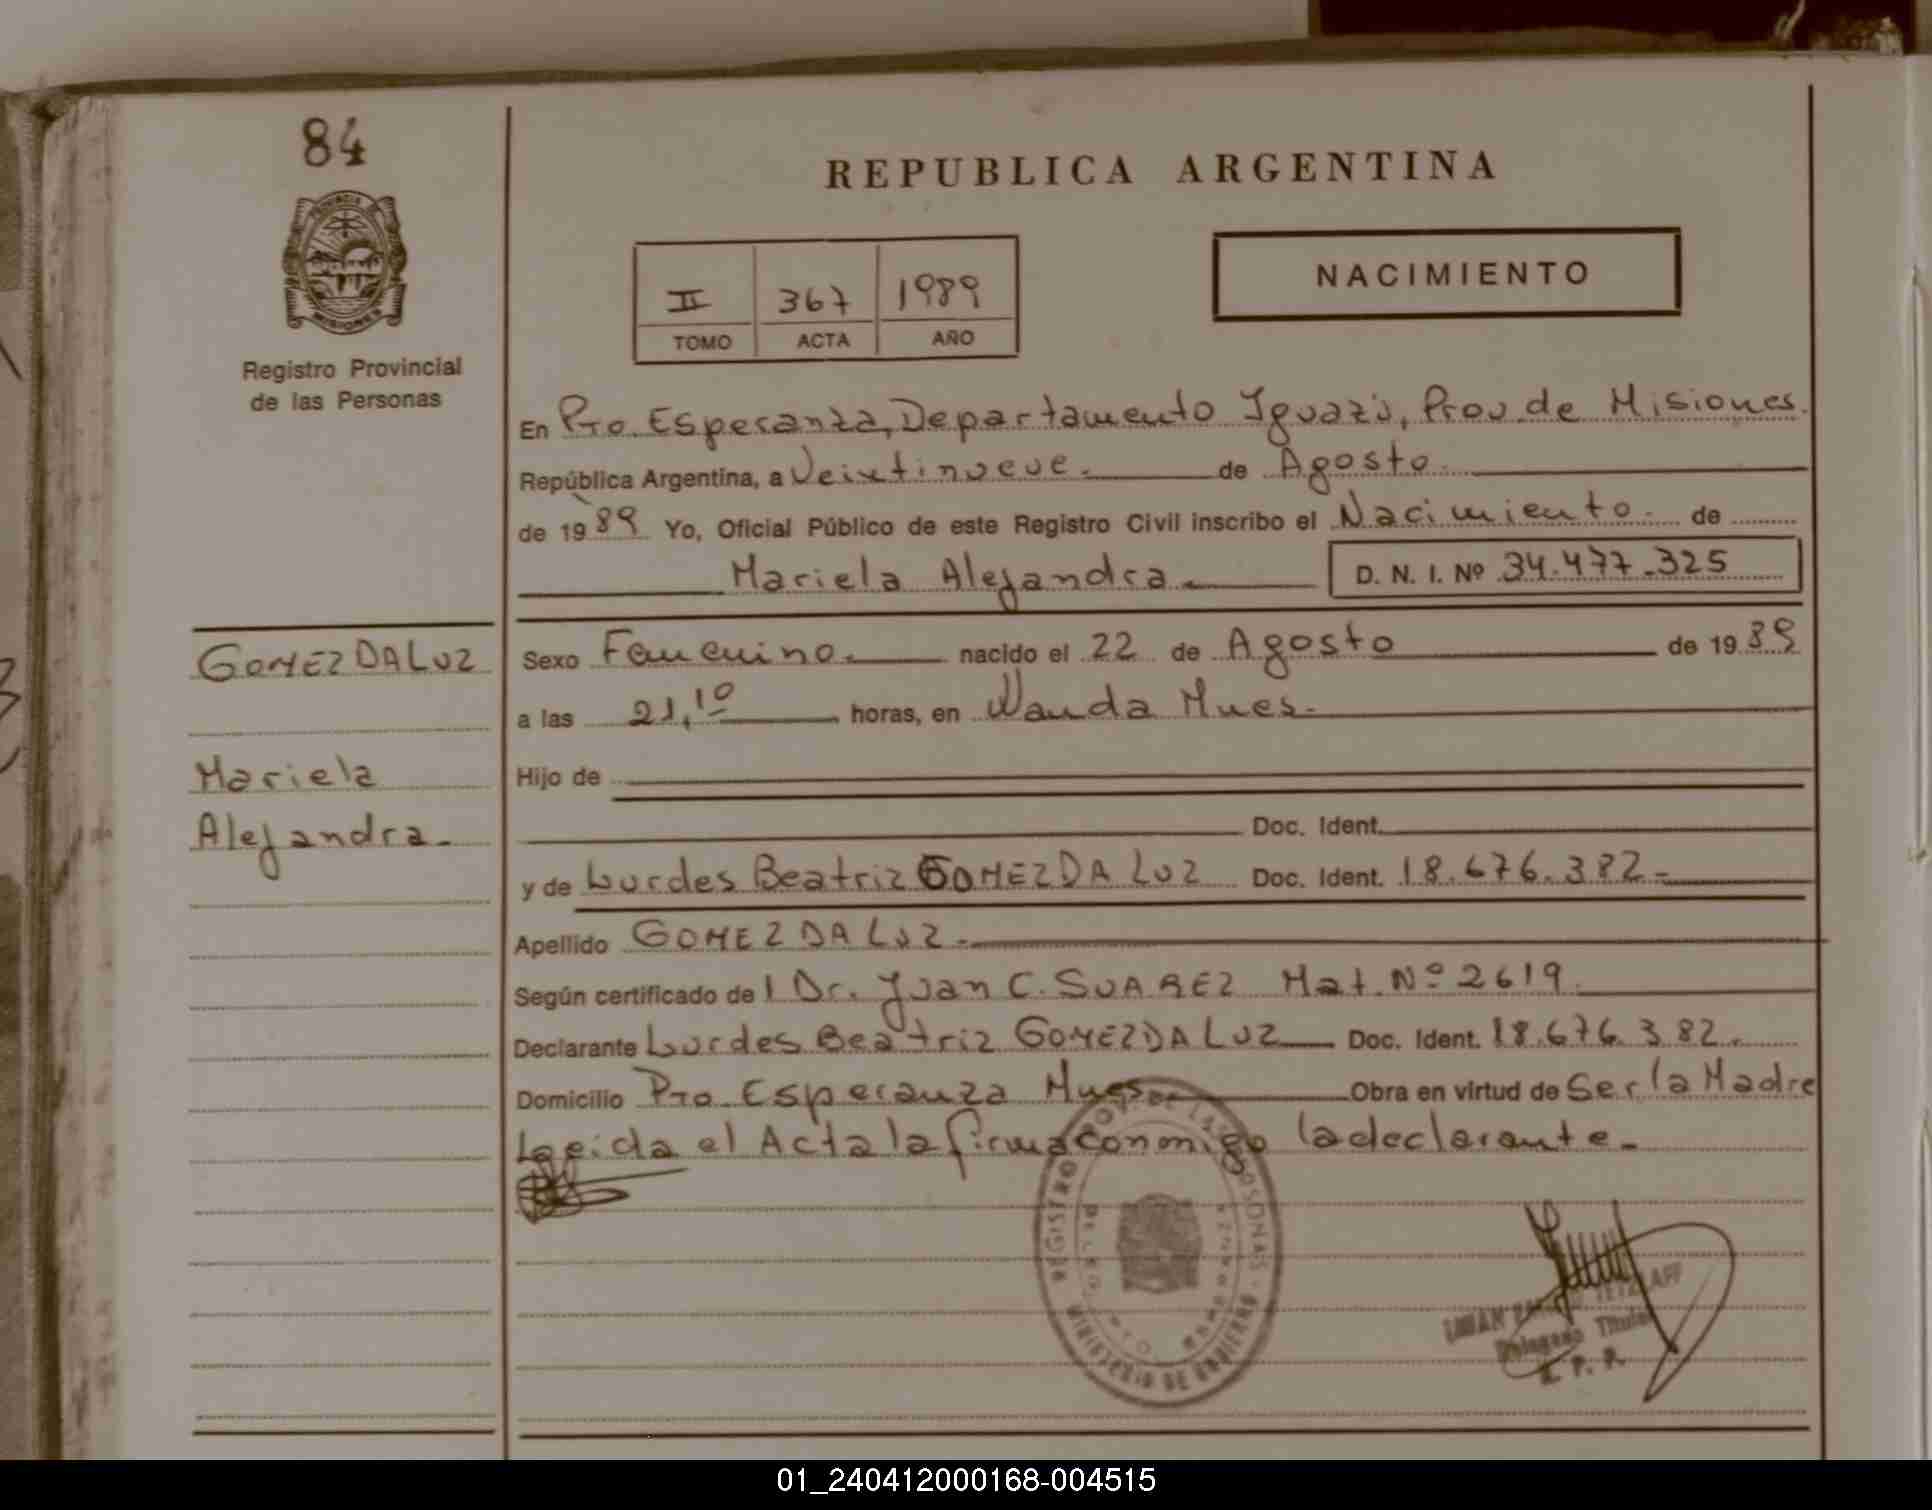 84
PROVINCIA DE
MISIONES
Registro Provincial
de las Personas
REPUBLICA ARGENTINA
II 367 1989
TOMO ACTA AÑO
NACIMIENTO
En Pto. Esperanza, Departamento Iguazú, Prov de Misiones.
República Argentina, a Veintinueve. de Agosto.
de 1989 Yo, Oficial Público de este Registro Civil inscribo el Nacimiento. de
Mariela Alejandra. D. N. I. Nº 34.477.325
GOMEZ DA LUZ
Mariela
Alejandra.
Sexo Femenino. nacido el 22 de Agosto de 1989
a las 21,10 horas, en Wanda Mnes.
Hijo de
Doc. Ident.
y de Lurdes Beatriz GOMEZ DA LUZ Doc. Ident. 18.676.382-
Apellido GOMEZ DA LUZ.
Según certificado del Dr. Juan C. SUAREZ Mat. Nº 2619.
Declarante Lurdes Beatriz GOMEZ DA LUZ Doc. Ident. 18.676.382.
Domicilio Pto. Esperanza Mnes. Obra en virtud de Ser la Madre
Leeida el Acta la firma conmigo la declarante.-
REGISTRO PROV. DE LAS PERSONAS
MINISTERIO DE GOBIERNO
Delegado Titular
R. P. P.
01_240412000168-004515